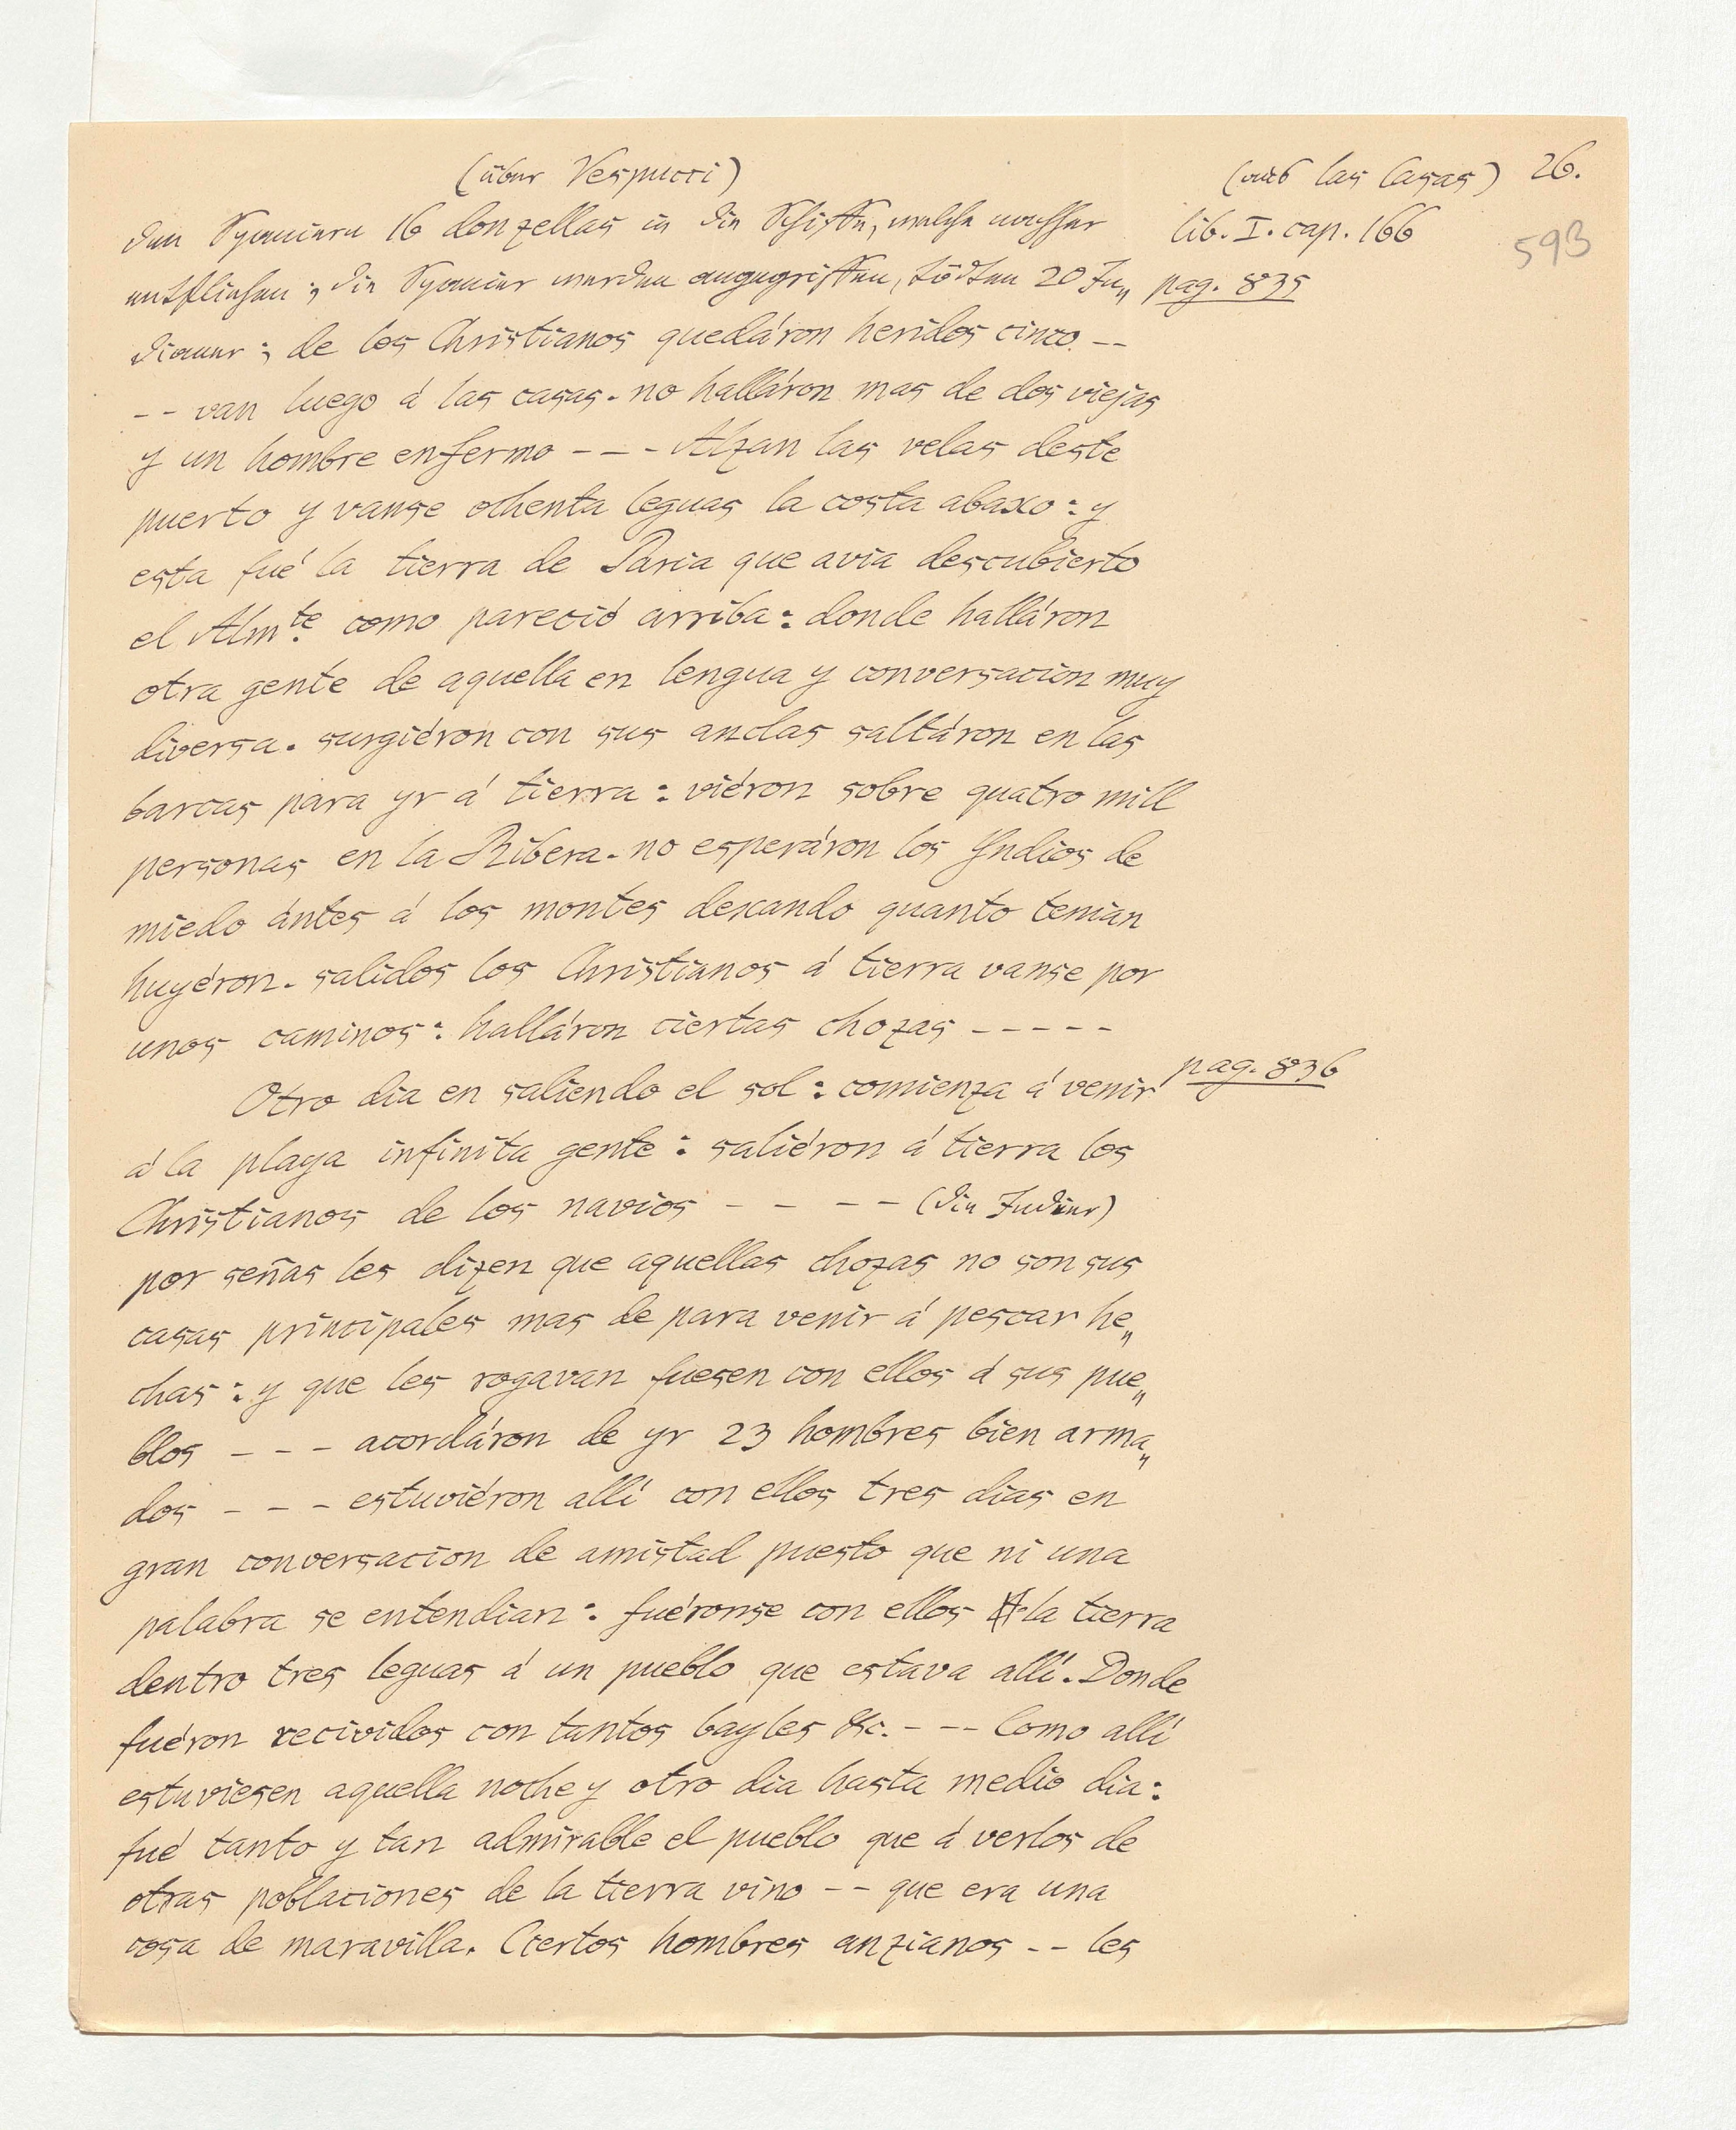 (über Vespucci)
(aus las Casas) 26.
593
den Spaniern 16 donzellas in die Schiffe, welche nachher
lib. I. cap. 166
entfliehen; die Spanier werden angegriffen, tödten 20 In„
pag. 835
dianer; de los Christianos quedáron heridos cinco --
-- van luego á las casas. no halláron mas de dos viejas
y un hombre enfermo --- Alzan las velas deste
puerto y vanse ochenta leguas la costa abaxo: y
esta fué la tierra de Paria que avia descubierto
el Almte. como pareció arriba: donde halláron
otra gente de aquella en lengua y conversacion muy
diversa. surgiéron con sus anclas saltáron en las
barcas para yr á tierra: viéron sobre quatro mill
personas en la Ribera. no esperáron los Yndios de
miedo ántes á los montes dexando quanto tenian
huyéron. salidos los Christianos á tierra vanse por
unos caminos: halláron ciertas chozas -----
Otro dia en saliendo el sol: comienza á venir
pag. 836
á la playa infinita gente: saliéron á tierra los
Christianos de los navios ---- (die Indier)
por señas les dizen que aquellas chozas no son sus
casas principales mas de para venir á pescar he„
chas: y que les rogavan fuesen con ellos á sus pue„
blos --- acordáron de yr 23 hombres bien arma„
dos --- estuviéron allí con ellos tres dias en
gran conversacion de amistad puesto que ni una
palabra se entendian: fuéronse con ellos la tierra
dentro tres leguas á un pueblo que estava allí. Donde
fuéron recividos con tantos bayles &c. --- Como allí
estuviesen aquella noche y otro dia hasta medio dia:
fué tanto y tan admirable el pueblo que á verlos de
otras poblaciones de la tierra vino -- que era una
cosa de maravilla. Ciertos hombres anzianos -- les